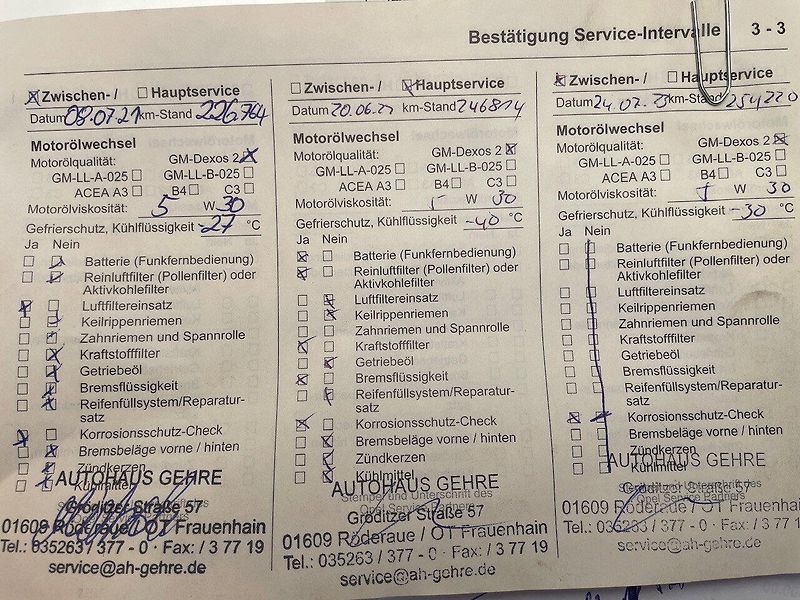 Bestätigung Service-Intervalle 3 - 3
Zwischen- / Hauptservice
Datum 08.07.21 km-Stand 226.764
Motorölwechsel
Motorölqualität: GM-Dexos 2
GM-LL-A-025 GM-LL-B-025
ACEA A3 B4 C3
Motorölviskosität: 5 W 30
Gefrierschutz, Kühlflüssigkeit -27 °C
Ja Nein
Batterie (Funkfernbedienung)
Reinluftfilter (Pollenfilter) oder
Aktivkohlefilter
Luftfiltereinsatz
Keilrippenriemen
Zahnriemen und Spannrolle
Kraftstofffilter
Getriebeöl
Bremsflüssigkeit
Reifenfüllsystem/Reparatur-
satz
Korrosionsschutz-Check
Bremsbeläge vorne / hinten
Zündkerzen
Kühlmittel
AUTOHAUS GEHRE
Gröditzer Straße 57
01609 Röderaue / OT Frauenhain
Tel.: 035263 / 377 - 0 · Fax: / 3 77 19
service@ah-gehre.de
Zwischen- / Hauptservice
Datum 20.06.22 km-Stand 246814
Motorölwechsel
Motorölqualität: GM-Dexos 2
GM-LL-A-025 GM-LL-B-025
ACEA A3 B4 C3
Motorölviskosität: 5 W 30
Gefrierschutz, Kühlflüssigkeit -40 °C
Ja Nein
Batterie (Funkfernbedienung)
Reinluftfilter (Pollenfilter) oder
Aktivkohlefilter
Luftfiltereinsatz
Keilrippenriemen
Zahnriemen und Spannrolle
Kraftstofffilter
Getriebeöl
Bremsflüssigkeit
Reifenfüllsystem/Reparatur-
satz
Korrosionsschutz-Check
Bremsbeläge vorne / hinten
Zündkerzen
Kühlmittel
AUTOHAUS GEHRE
Stempel und Unterschrift des
Opel Service Partners
Gröditzer Straße 57
01609 Röderaue / OT Frauenhain
Tel.: 035263 / 377 - 0 · Fax: / 3 77 19
service@ah-gehre.de
Zwischen- / Hauptservice
Datum 24.07.23 km-Stand 254220
Motorölwechsel
Motorölqualität: GM-Dexos 2
GM-LL-A-025 GM-LL-B-025
ACEA A3 B4 C3
Motorölviskosität: 5 W 30
Gefrierschutz, Kühlflüssigkeit -30 °C
Ja Nein
Batterie (Funkfernbedienung)
Reinluftfilter (Pollenfilter) oder
Aktivkohlefilter
Luftfiltereinsatz
Keilrippenriemen
Zahnriemen und Spannrolle
Kraftstofffilter
Getriebeöl
Bremsflüssigkeit
Reifenfüllsystem/Reparatur-
satz
Korrosionsschutz-Check
Bremsbeläge vorne / hinten
Zündkerzen
Kühlmittel
AUTOHAUS GEHRE
Stempel und Unterschrift des
Opel Service Partners
Gröditzer Straße 57
01609 Röderaue / OT Frauenhain
Tel.: 035263 / 377 - 0 · Fax: / 3 77 19
service@ah-gehre.de